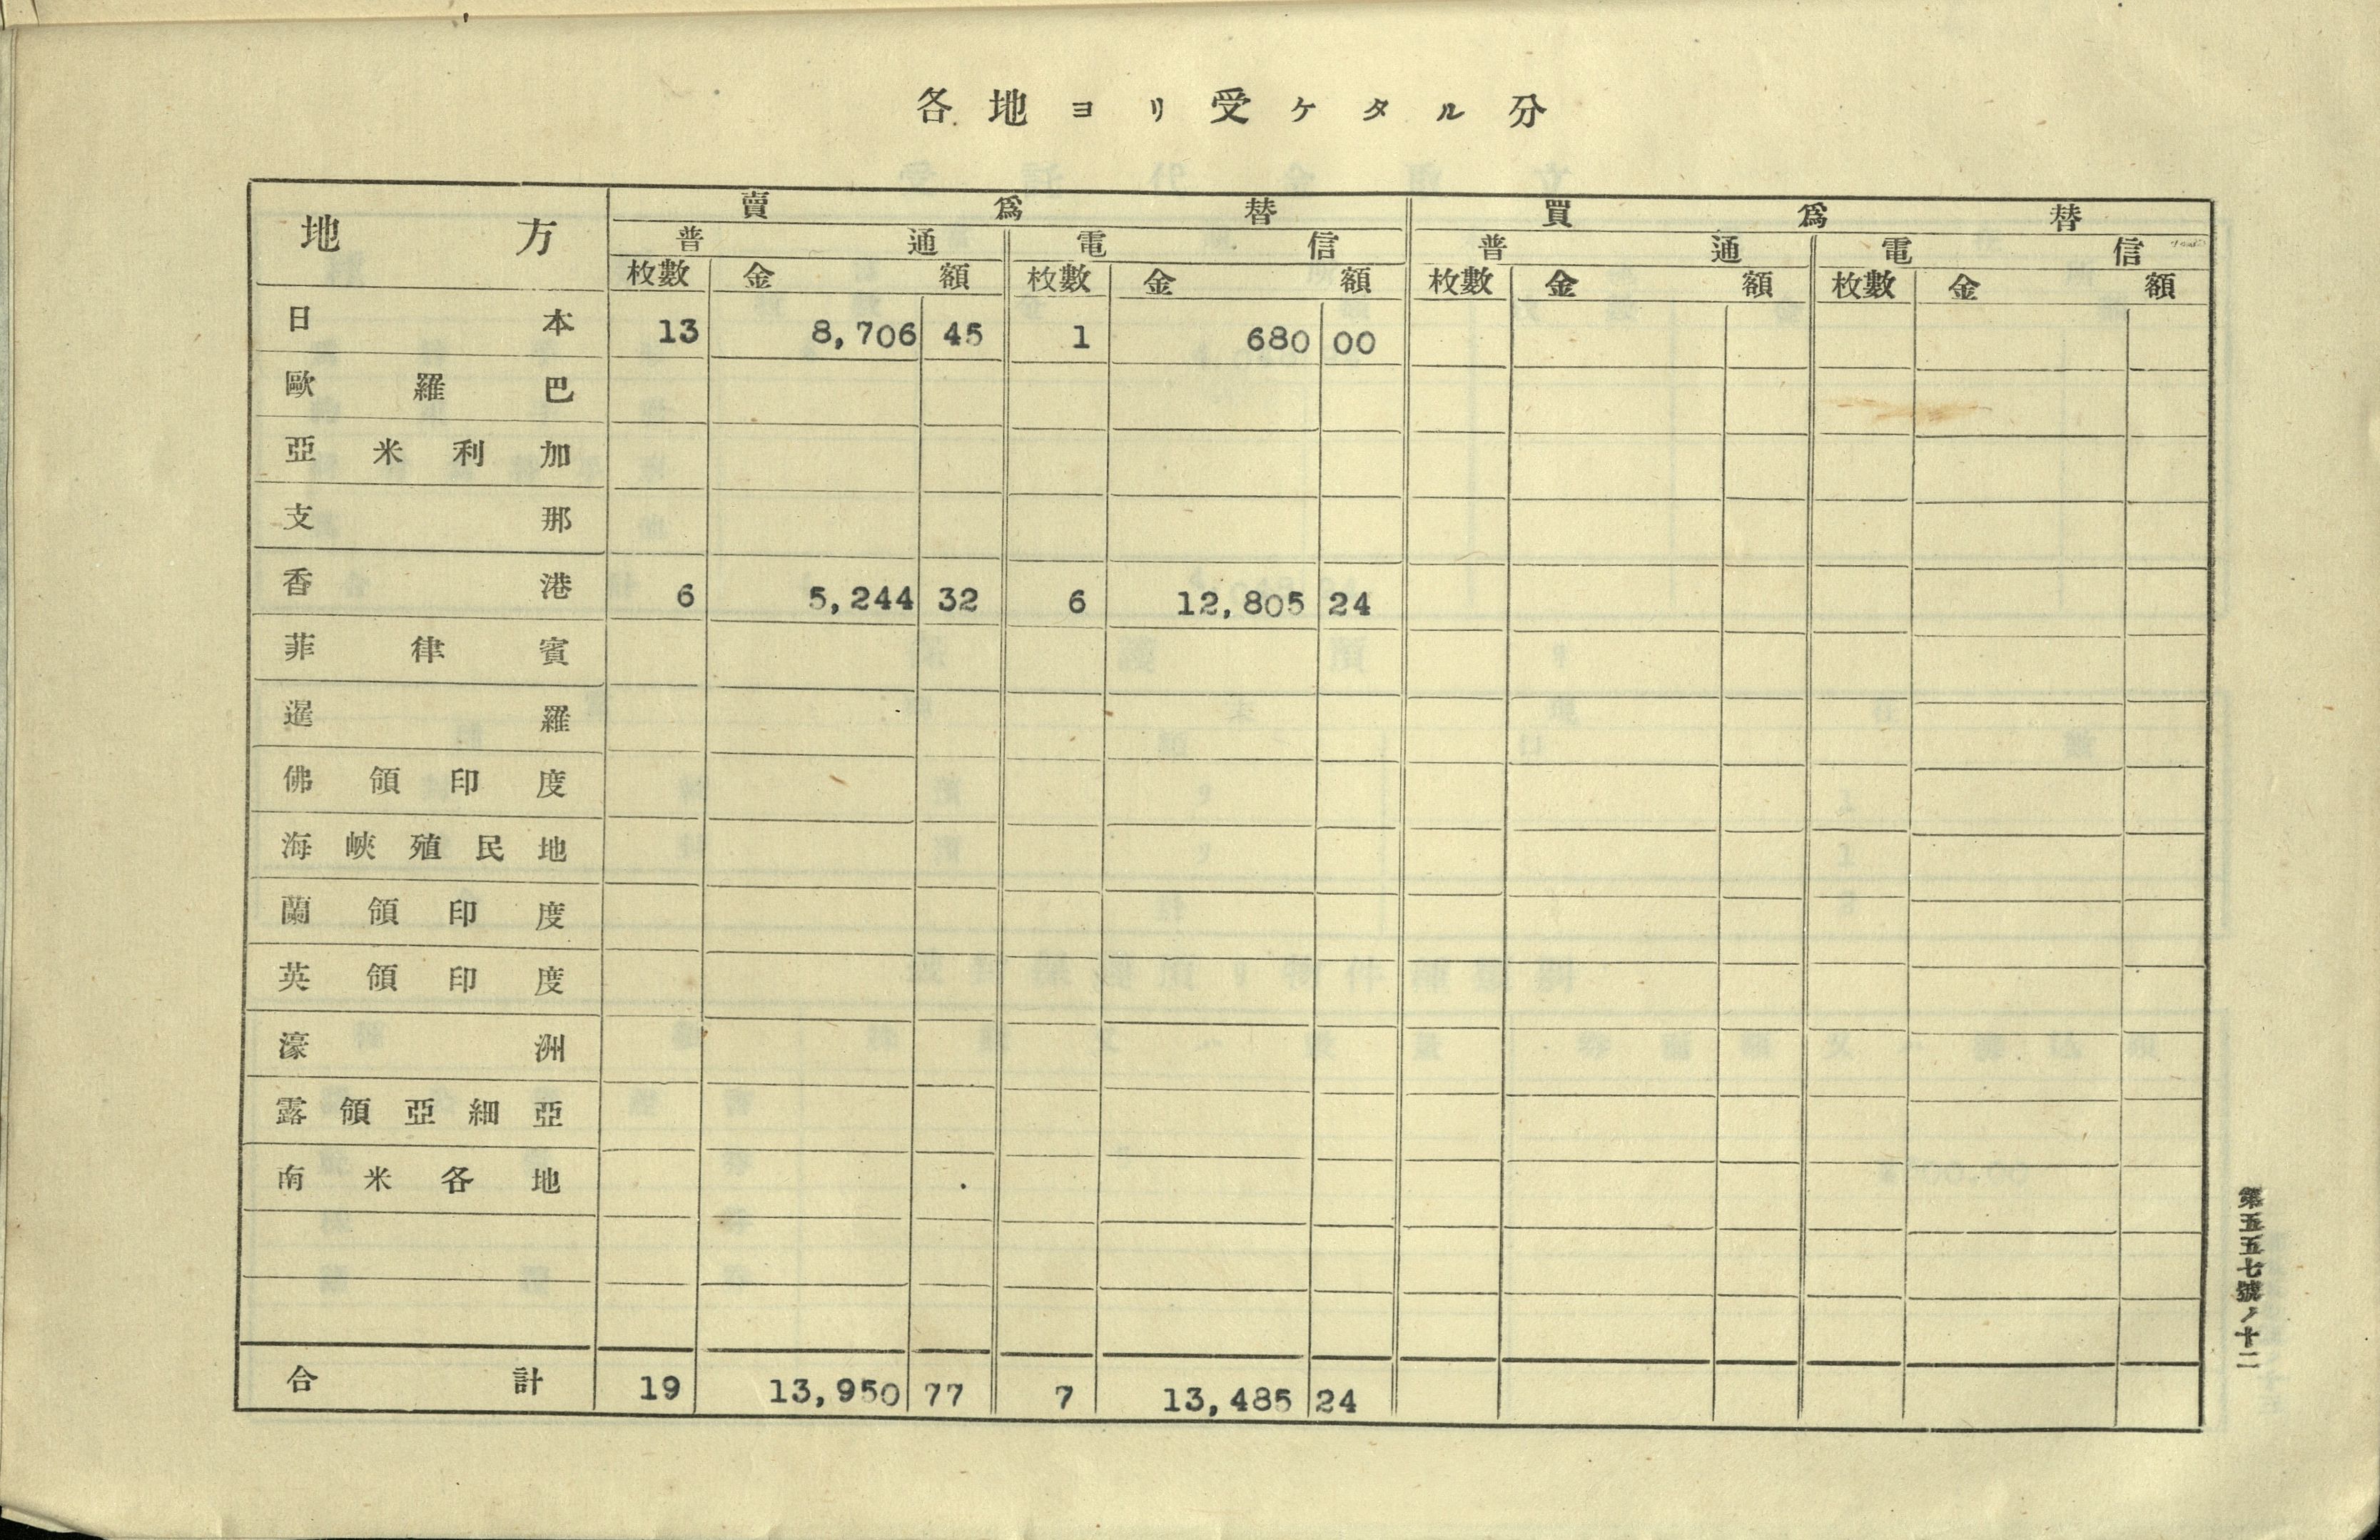 各地ヨリ受ケタル分
地方 賣爲替 買爲替
普通 電信 普通 電信
枚數 金額 枚數 金額 枚數 金額 枚數 金額
日本 13 8,706 45 1 680 00
歐羅巴
亞米利加
支那
香港 6 5,244 32 6 12,805 24
菲律賓
暹羅
佛領印度
海峽殖民地
蘭領印度
英領印度
濠洲
露領亞細亞
南米各地
合計 19 13,950 77 7 13,485 24
第五五七號ノ十二